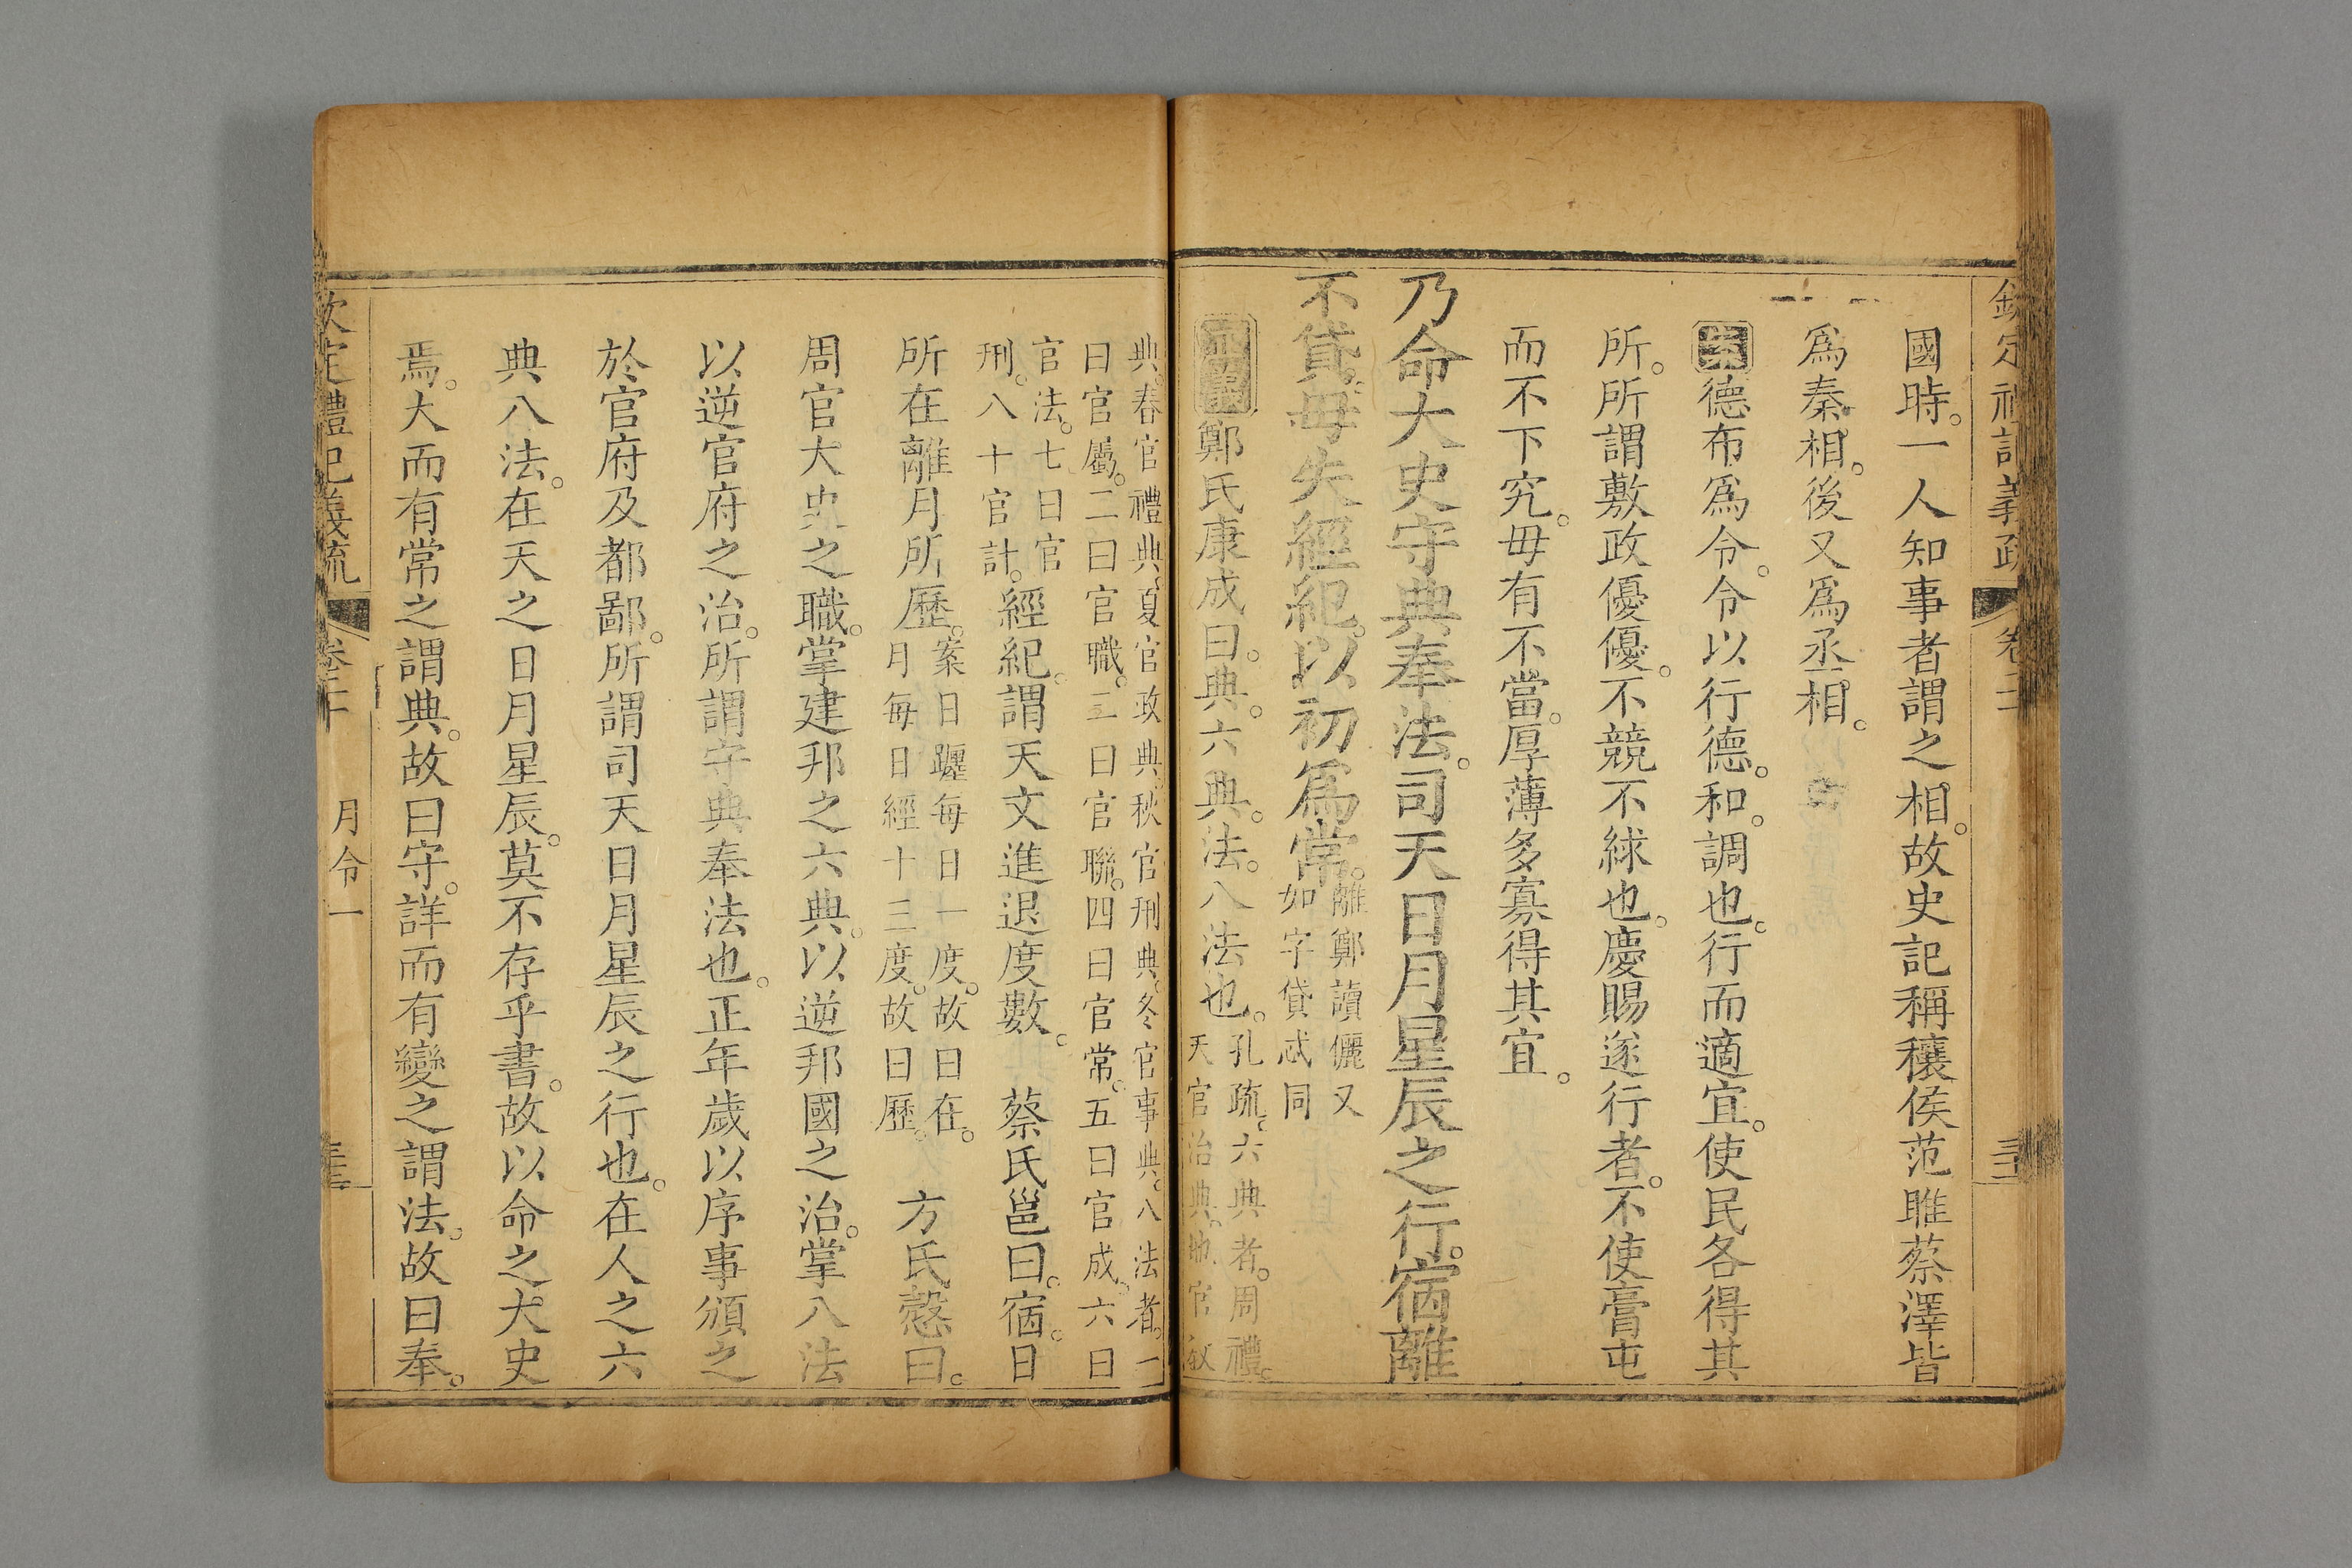 國時。一人知事者謂之相。故史記稱穰侯范雎蔡澤皆
爲秦相。後又爲丞相。
案德布爲令。令以行德。和。調也。行而適宜。使民各得其
所。所謂敷政優優。不競不絿也。慶賜遂行者。不使膏屯
而不下究。毋有不當。厚薄多寡得其宜。
乃命大史守典奉法。司天日月星辰之行。宿離
不貸。毋失經紀。以初爲常。離鄭讀儷又
如字貸忒同
正義鄭氏康成曰。典。六典。法。八法也。孔疏。六典者。周禮。
天官治典。地官敎
典。春官禮典。夏官政典。秋官刑典。冬官事典。八法者。一
曰官屬。二曰官職。三曰官聯。四曰官常。五曰官成。六曰
官法。七曰官
刑。八十官計。經紀。謂天文進退度數。 蔡氏邕曰。宿。日
所在離月所歷。案日躔每日一度。故曰在。
月每日經十三度。故曰歷。 方氏慤曰。
周官大史之職。掌建邦之六典。以逆邦國之治。掌八法
以逆官府之治。所謂守典奉法也。正年歲以序事頒之
於官府及都鄙。所謂司天日月星辰之行也。在人之六
典八法。在天之日月星辰。莫不存乎書。故以命之大史
焉。大而有常之謂典。故曰守。詳而有變之謂法。故曰奉。
欽定禮記義疏
月令一